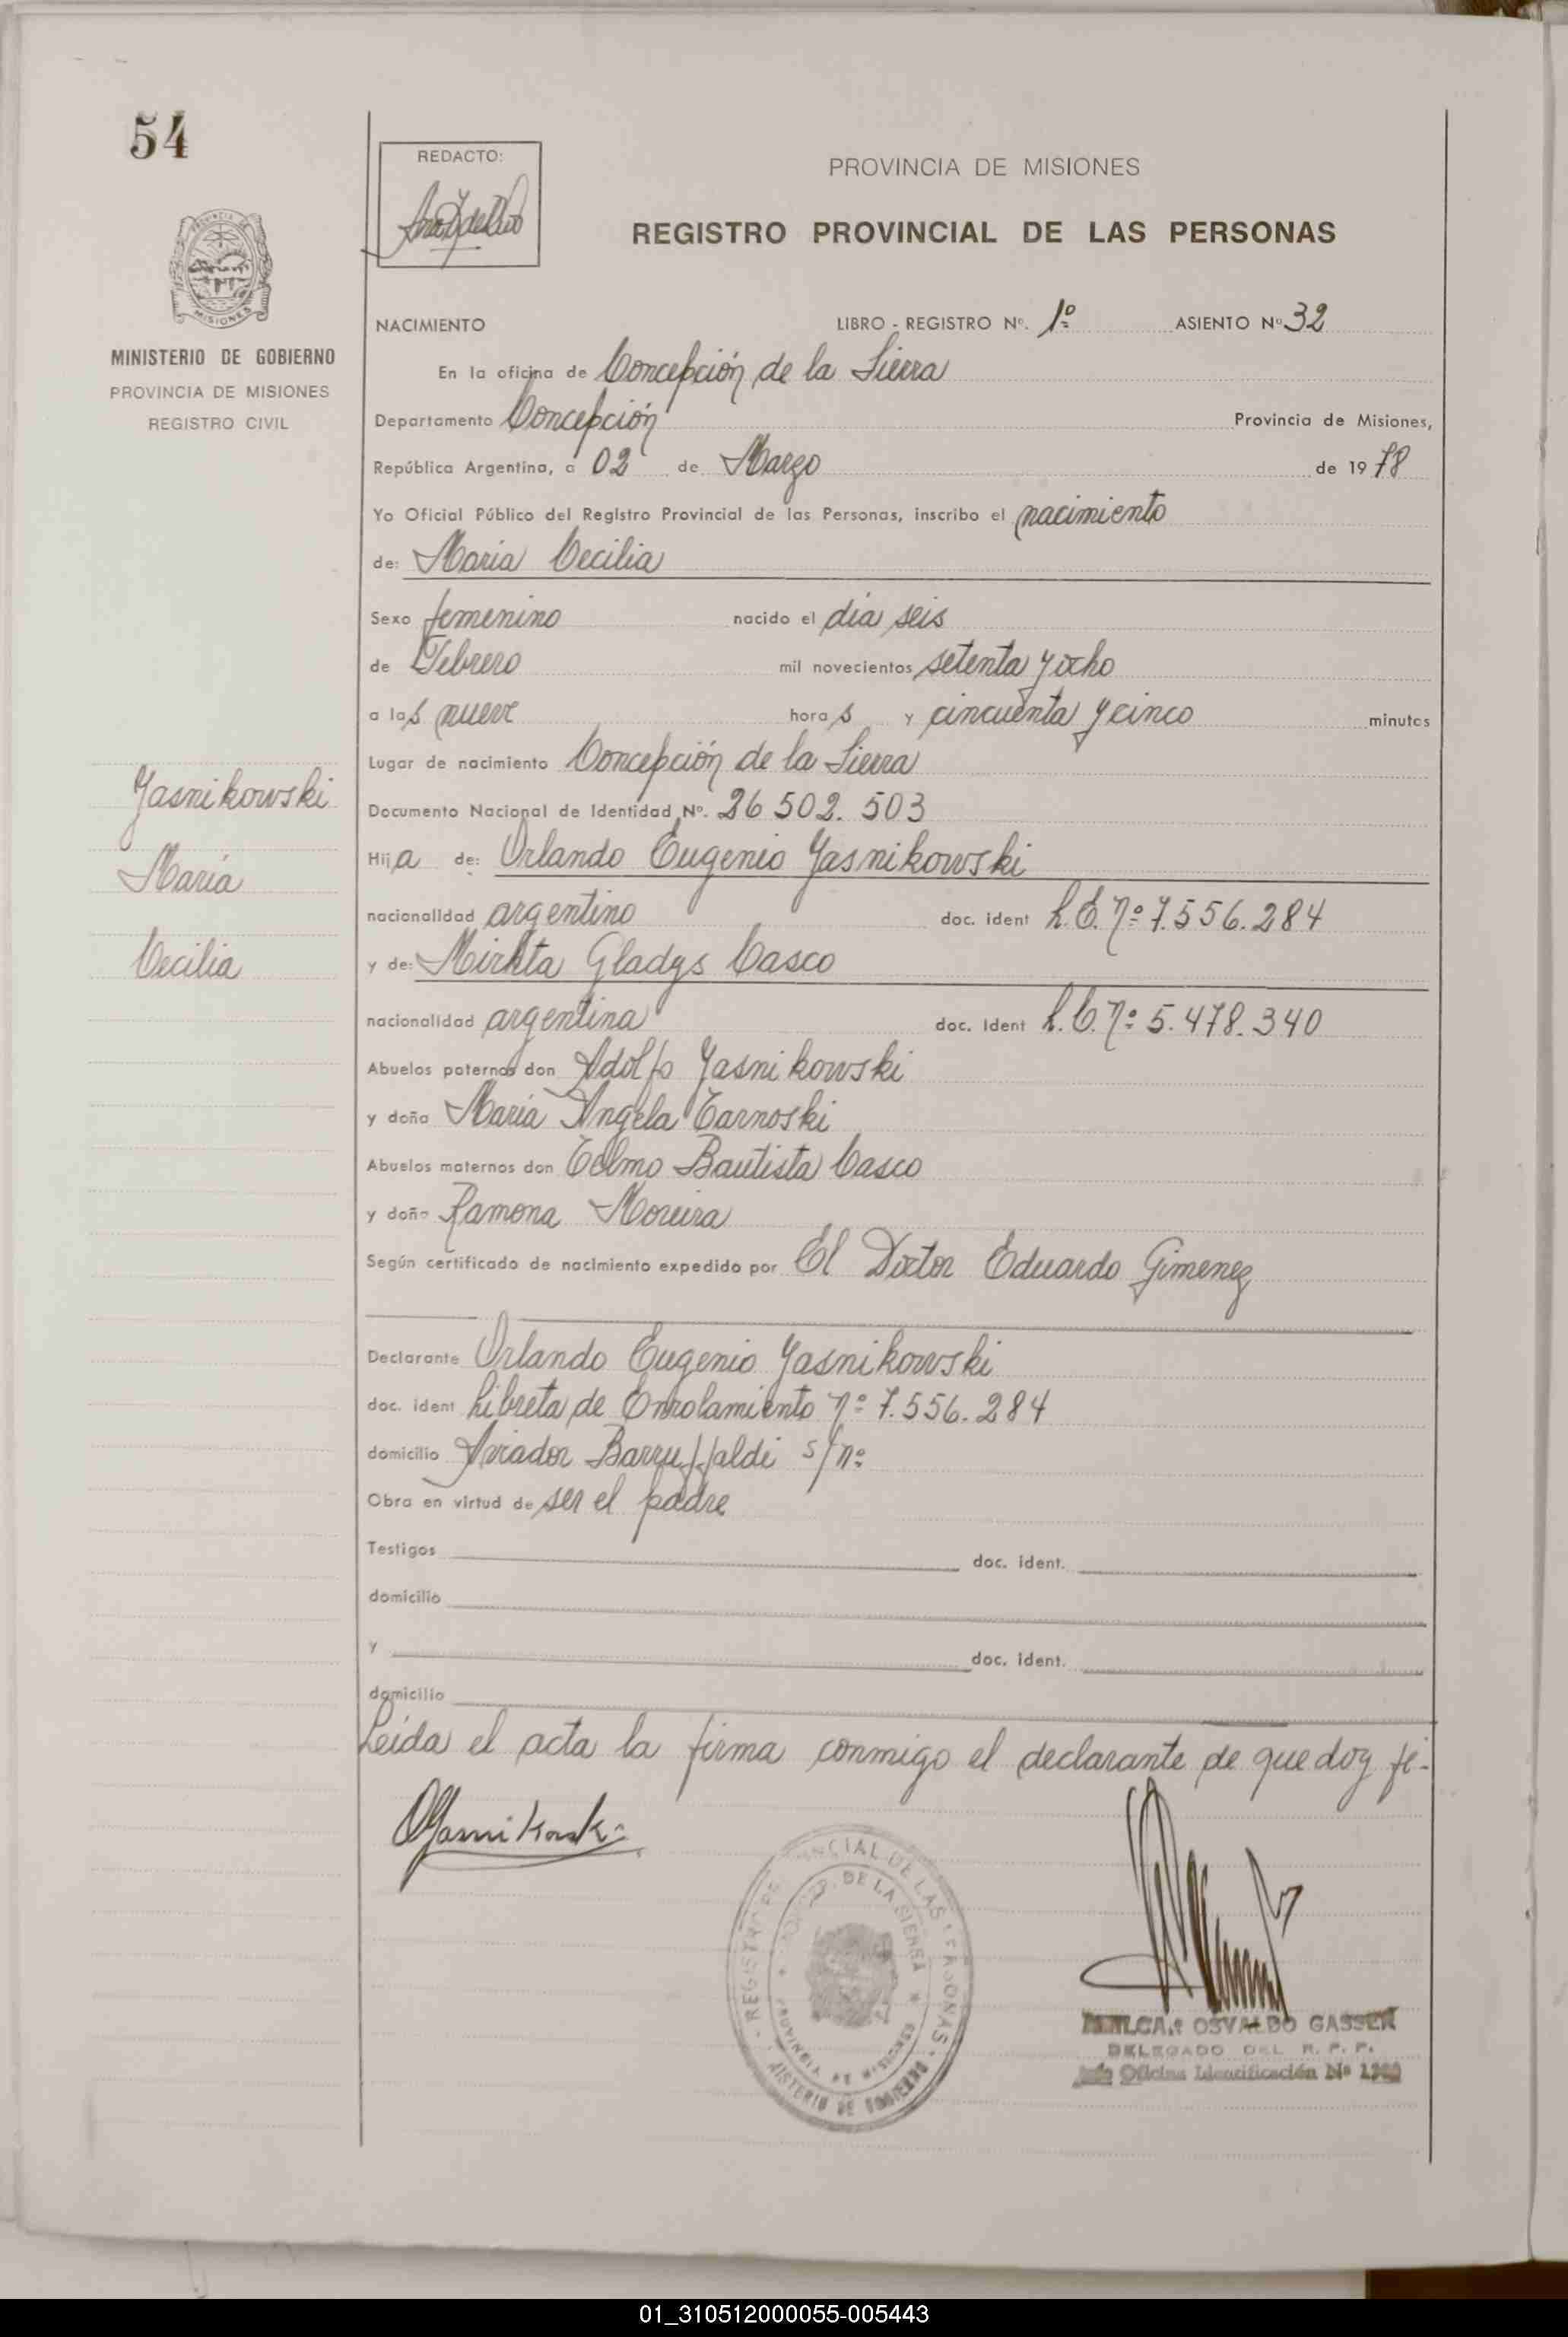 54
REDACTO:
PROVINCIA DE MISIONES
REGISTRO PROVINCIAL DE LAS PERSONAS
PROVINCIA DE
MISIONES
MINISTERIO DE GOBIERNO
PROVINCIA DE MISIONES
REGISTRO CIVIL
NACIMIENTO LIBRO - REGISTRO Nº. 1º ASIENTO Nº 32
En la oficina de Concepción de la Sierra
Departamento Concepción Provincia de Misiones,
República Argentina, a 02 de Marzo de 1978
Yo Oficial Público del Registro Provincial de las Personas, inscribo el nacimiento
de: María Cecilia
Sexo femenino nacido el día seis
de Febrero mil novecientos setenta y ocho
a las nueve horas y cincuenta y cinco minutos
Lugar de nacimiento Concepción de la Sierra
Documento Nacional de Identidad Nº. 26 502. 503
Hija de: Orlando Eugenio Yasnikowski
nacionalidad argentino doc. ident L.E. nº 7.556.284
y de: Mirhta Gladys Casco
nacionalidad argentina doc. ident L.C. nº 5.478.340
Abuelos paternos don Adolfo Yasnikowski
y doña María Angela Tarnoski
Abuelos maternos don Telmo Bautista Casco
y doña Ramona Moreira
Según certificado de nacimiento expedido por El Doctor Eduardo Gimenez
Declarante Orlando Eugenio Yasnikowski
doc. ident Libreta de Enrolamiento nº 7.556.284
domicilio Aviador Barruffaldi s/nº
Obra en virtud de ser el padre
Testigos doc. ident.
domicilio
y doc. ident.
domicilio
Leída el acta la firma conmigo el declarante de que doy fé.
Yasnikowski
María
Cecilia
REGISTRO PROVINCIAL DE LAS PERSONAS
CONCEP. DE LA SIERRA
PROVINCIA DE MISIONES
MINISTERIO DE GOBIERNO
OSVALDO GASSER
DELEGADO DEL R. P. P.
Jefe Oficina Identificación Nº
01_310512000055-005443